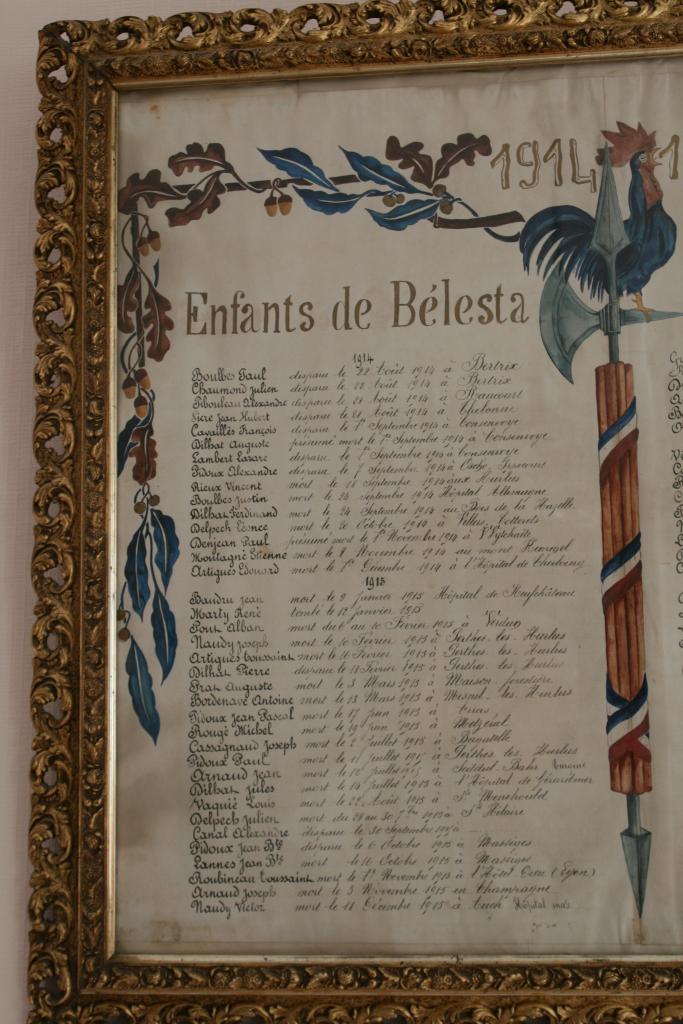 1914 1
Enfants de Bélesta
1914
Boulbes Paul disparu le 22 Août 1914 à Bertrix
Chaumond Julien disparu le 22 Août 1914 à Bertrix
Tibouleau Alexandre disparu le 28 Août 1914 à Raucourt
Jean Hubert disparu le 28 Août 1914 à
Cavaillés François disparu le 1er Septembre 1914 à Consenvoye
Dilhat Auguste présumé mort le 1er Septembre 1914 à Consenvoye
Lambert Lazare disparu le 1er Septembre 1914 à Consenvoye
Pidoux Alexandre disparu le 7 Septembre 1914 à
Rieux Vincent mort le 18 Septembre 1914 aux Hurlus
Boulbes Justin mort le 24 Septembre 1914 Hôpital Allemagne
Dilhat Ferdinand mort le 24 Septembre 1914 au Bois de la
Delpech Léonce mort le 20 Octobre 1914 à Villers Cotterets
Denjean Paul présumé mort le 1er Novembre 1914 à
Montagné Etienne mort le 8 Novembre 1914 au mont Kemmel
Artigues Edouard mort le 1er Décembre 1914 à l'Hôpital de Cherbourg
1915
Baudru Jean mort le 9 Janvier 1915 Hôpital de Neufchâteau
Marty René tombé le 12 Janvier 1915
Pont Alban mort du 6 au 10 Février 1915 à Verdun
Naudy Joseph mort le 10 Février 1915 à Perthes les Hurlus
Artigues Toussaint mort le 16 Février 1915 à Perthes les Hurlus
Dilhat Pierre disparu le 18 Février 1915 à Perthes les Hurlus
Prat Auguste mort le 3 Mars 1915 à Maison forestière
Bordenave Antoine mort le 13 Mars 1915 à Mesnil les Hurlus
Pidoux Jean Pascal mort le 17 Juin 1915 à
Rougé Michel mort le 19 Juin 1915 à Metzeral
Cassaignaud Joseph mort le 2 Juillet 1915 à Bagatelle
Pidoux Paul mort le 11 Juillet 1915 à Perthes les Hurlus
Arnaud Jean mort le 12 Juillet 1915 à Seddul Bahr Turquie
Dilhat Jules mort le 14 Juillet 1915 à l'Hôpital de Gérardmer
Vaquié Louis mort le 22 Août 1915 à Ste Menehould
Delpech Julien mort du 28 au 30 7bre 1915 à St Hilaire
Canal Alexandre disparu le 30 Septembre 1915 à
Pidoux Jean Bte disparu le 6 Octobre 1915 à Massiges
Lannes Jean Bte mort le 16 Octobre 1915 à Massiges
Roubineau Toussaint mort le 1er Novembre 1915 à l'Hôtel Dieu (Lyon)
Arnaud Joseph mort le 3 Novembre 1915 en Champagne
Naudy Victor mort le 11 Décembre 1915 à Auch Hôpital